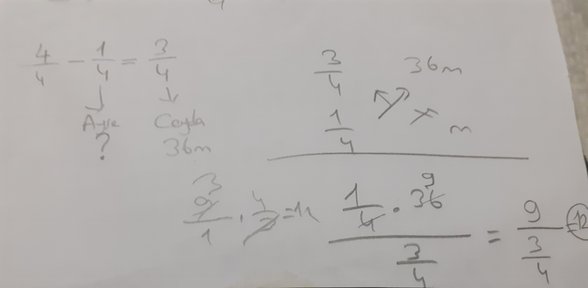 4/4 - 1/4 = 3/4
Ayşe Ceyda
? 36m
3/4 36m
1/4 x m
9/1 . 4/3 = 12
3
1/4 . 36
9
3/4
= 9 / 3/4 = 12